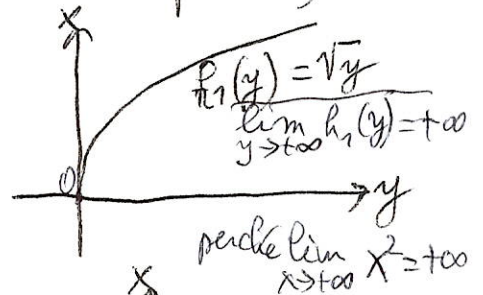 x
h₁(y) = √y
lim h₁(y) = +∞
y→+∞
0
y
perché lim x² = +∞
x→+∞
x